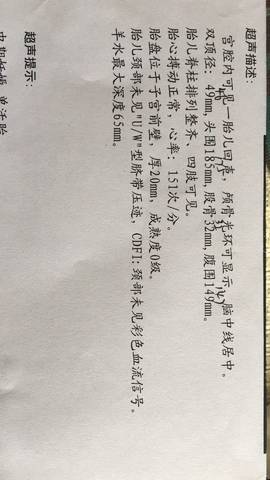 超声描述:
宫腔内可见一胎儿回声, 颅骨光环可显示, 脑中线居中。
双顶径: 49mm, 头围185mm, 股骨32mm, 腹围149mm。
胎儿脊柱排列整齐、四肢可见。
胎心搏动正常, 心率: 151次/分。
胎盘位于子宫前壁, 厚20mm, 成熟度0级。
胎儿颈部未见"U/W"型脐带压迹, CDFI: 颈部未见彩色血流信号。
羊水最大深度65mm。
超声提示:
中期妊娠, 单活胎